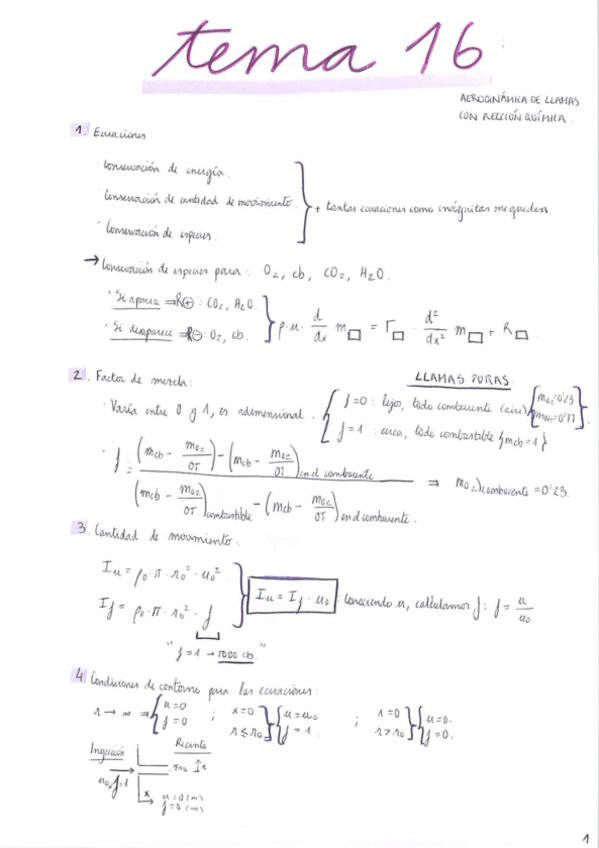 tema 16
AERODINÁMICA DE LLAMAS
CON RECCIÓN QUÍMICA.
1. Ecuaciones:
· Conservación de energía.
· Conservación de cantidad de movimiento.
· Conservación de especies.
+ tantas ecuaciones como incógnitas me queden.
→ Conservación de especies para: O₂, cb, CO₂, H₂O.
· Si aparece ⇒ R⊕: CO₂, H₂O.
· Si desaparece ⇒ R⊖: O₂, cb.
ρ·u· d/dx m□ = Γ□ · d²/dx² m□ + R□
2. Factor de mezcla:
LLAMAS PURAS
· Varía entre 0 y 1, es adimensional.
f=0: lejos, todo comburente (aire) { mO₂=0'23 mN₂=0'77 }
f=1: cerca, todo combustible {mcb=1}
f = ((mcb - mO₂/OT) - (mcb - mO₂/OT) en el comburente) / ((mcb - mO₂/OT) combustible - (mcb - mO₂/OT) en el comburente.) ⇒ mO₂) comburente = 0'23.
3. Cantidad de movimiento:
Iu = ρ0·π·r0²·u0²
If = ρ0·π·r0²·f
Iu = If · u0
Conociendo u, calculamos f: f = u/u0.
"f=1 → TODO cb."
4. Condiciones de contorno para las ecuaciones:
r → ∞ ⇒ { u=0 f=0 ; x=0 r≤r0 } { u=u0 f=1. ; x=0 r>r0 } { u=0. f=0.
Inyección
Recinto
u0, f=1
x
u=0 (∞)
f=0 (∞)
1